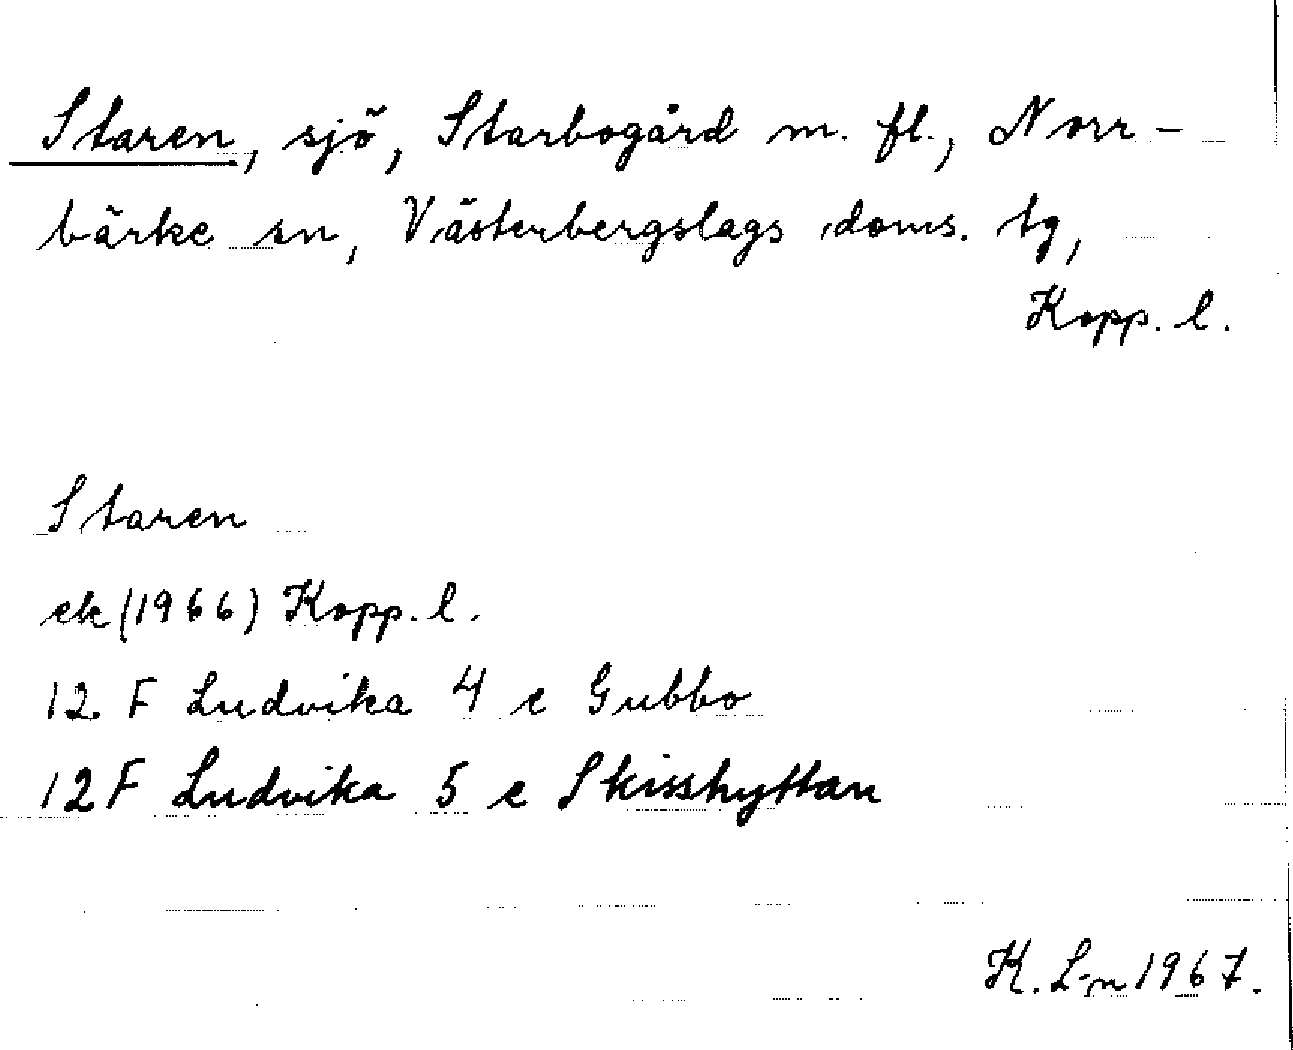 Staren, sjö, Starbogård m. fl., Norr-
bärke sn, Västerbergslags doms. tg,
Kopp. l.
Staren
ek (1966) Kopp. l.
12 F Ludvika 4 e Gubbo
12 F Ludvika 5 e Skisshyttan
K. L-n 1967.